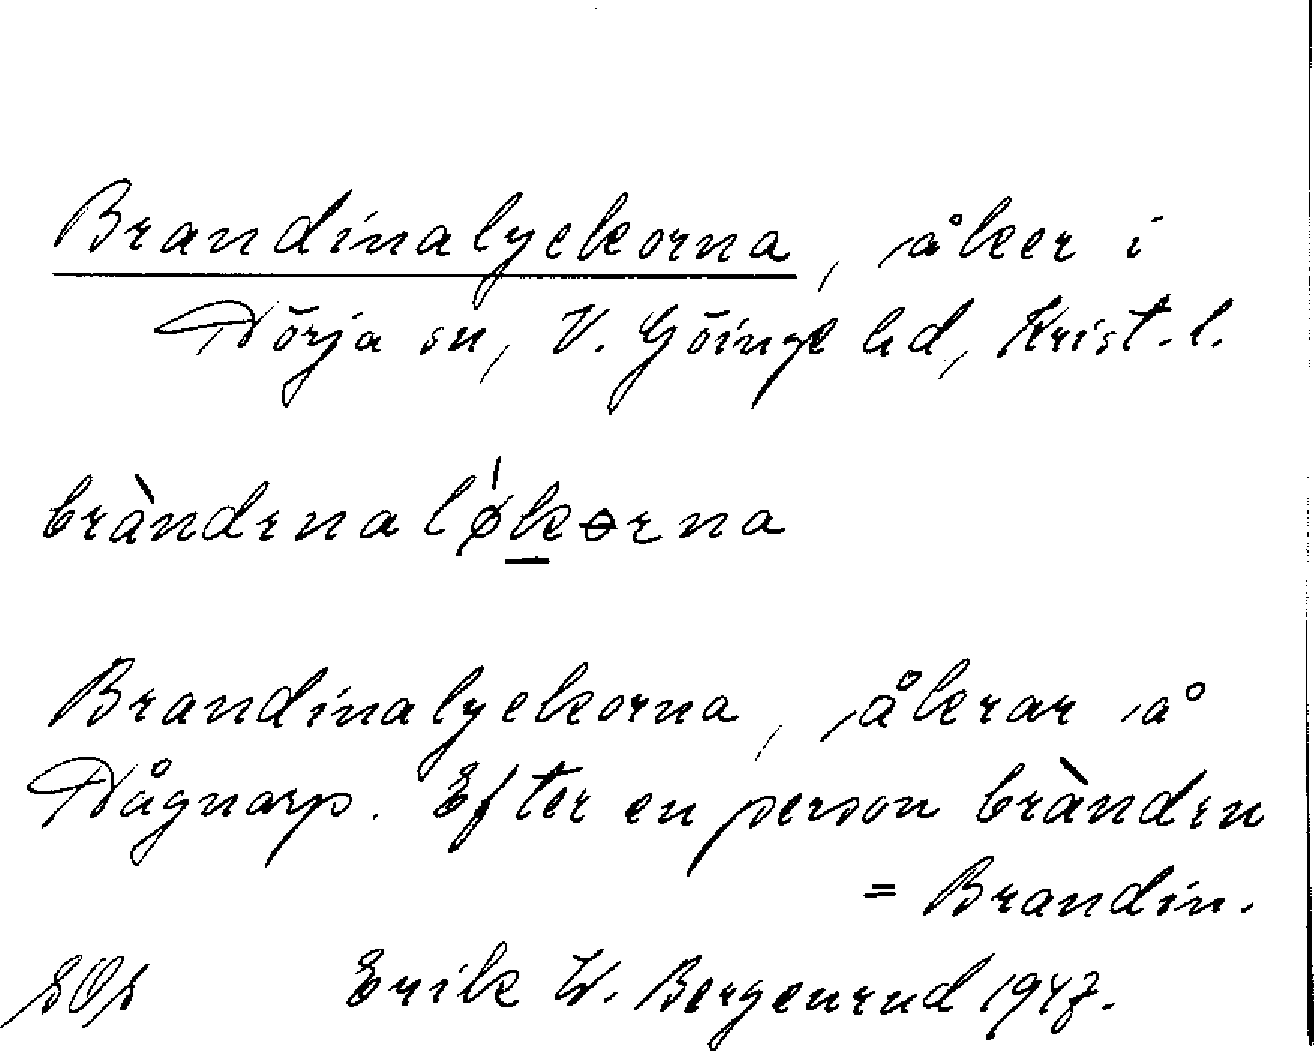 Brandinalyckorna, åker i
Nörja sn, V. Göinge hd, Krist. l.
bràndɪnaløkɵrna
Brandinalyckorna, åkrar å
Någnarp. Efter en person bràndɪn
= Brandin.
SOS Erik W. Bergenrud 1947.